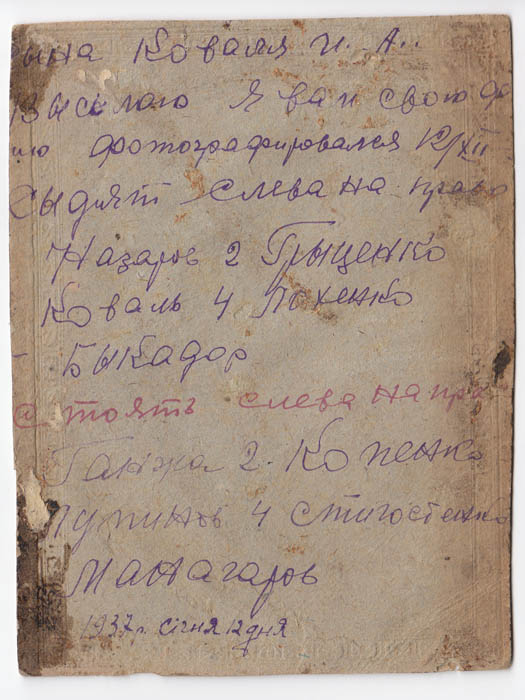 ына Коваля И. А.
Высылаю Я вам свою фо
ию фотографировался 12/XII
Сыдят слева на право
Назаров 2 Грыценко
Коваль 4 Лохенко
Быкадор
Стоять слева на пра
Ганжа 2. Копенко
Лупинов 4 Стигостенко
Манагаров
1937 г. січня 12 дня